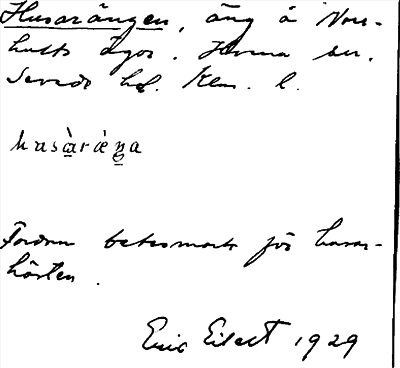 Husarängen, äng å Norr-
hults ägor. Järeda sn.
Sevede hd. Klm. l.
husàrǽŋa
Fordom betesmark för husar-
hästen.
Eric Eilert 1929